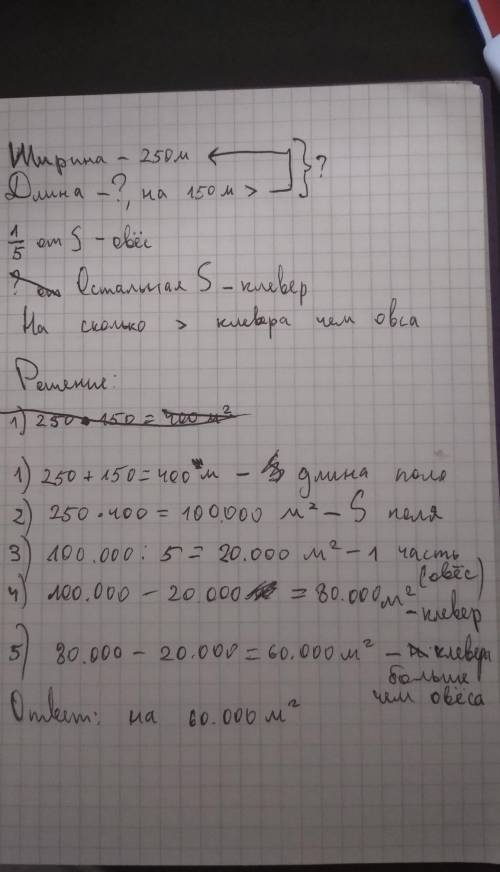 Ширина - 250м ?
Длина - ?, на 150 м >
1/5 от S - овёс
? Остальная S - клевер
На сколько > клевера чем овса
Решение:
1) 250 · 150 = 400 м²
1) 250 + 150 = 400 м - длина поля
2) 250 · 400 = 100.000 м² - S поля
3) 100.000 : 5 = 20.000 м² - 1 часть
(овёс)
4) 100.000 - 20.000 = 80.000 м²
- клевер
5) 80.000 - 20.000 = 60.000 м² - клевера
больше
чем овёса
Ответ: на 60.000 м²